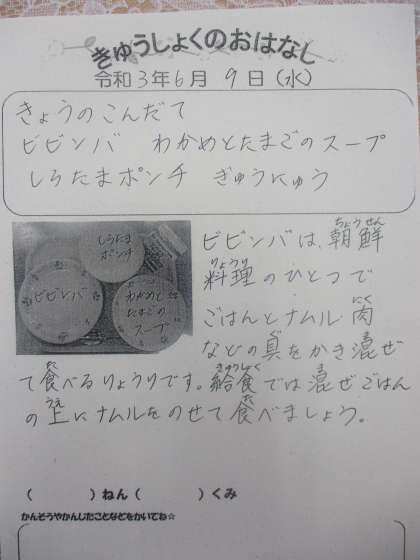 きゅうしょくのおはなし
令和3年6月9日(水)
きょうのこんだて
ビビンバ わかめとたまごのスープ
しらたまポンチ ぎゅうにゅう
しらたま
ポンチ
ビビンバ
わかめと
たまごの
スープ
ビビンバは、朝鮮
ちょうせん
料理のひとつで
りょうり
ごはんとナムル・肉
にく
などの具をかき混ぜ
ま
て食べるりょうりです。給食では混ぜごはん
た
きゅうしょく
ま
の上にナムルをのせて食べましょう。
うえ
た
( )ねん( )くみ
かんそうやかんじたことなどをかいてね☆